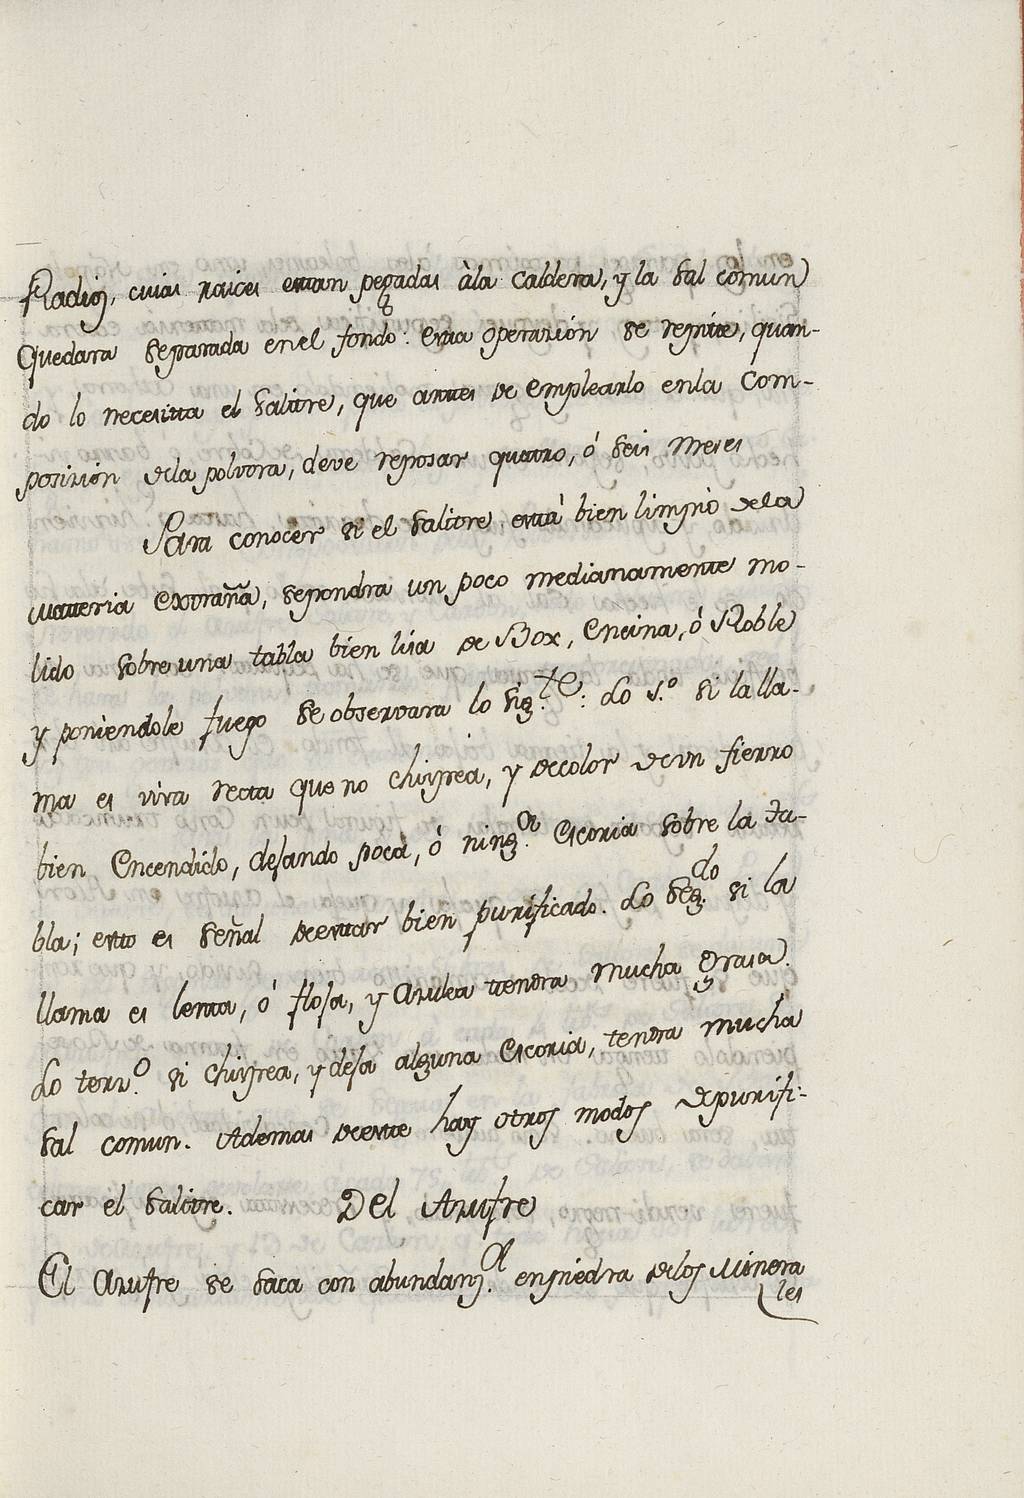 Radios, cuias raices estan pegadas àla Caldera, y la Sal comun
Quedara separada enel fondo: esta operazión se repite, quan-
do lo necesitta el Salitre, que antes de emplearlo enla Com-
posizión dela polvora, deve reposar quatro, ó seis meses
Para conocer si el Salitre, està bien limpiò dela
matteria extraña, sepondra un poco medianamente mo-
lido sobre una tabla bien lisa de Box, Encina, ó Roble
y poniendole fuego se observara lo Sig.te: Lo 1.º si la lla-
ma es viva recta que no Chispea, y decolor deun fierro
bien Encendido, desando poca, ó ning.a Escoria sobre la Ta-
bla; esto es señal deestar bien purificado. Lo Seg.do si la
llama es lenta, ó flosa, y Azulea tendra mucha grasa.
Lo terz.o si Chispea, y desa alguna Escoria, tendra mucha
Sal comun. Ademas deeste hay otros modos depurifi-
car el Salitre. Del Azufre
El Azufre se saca con abundanz.a enpiedra delos Minera
les